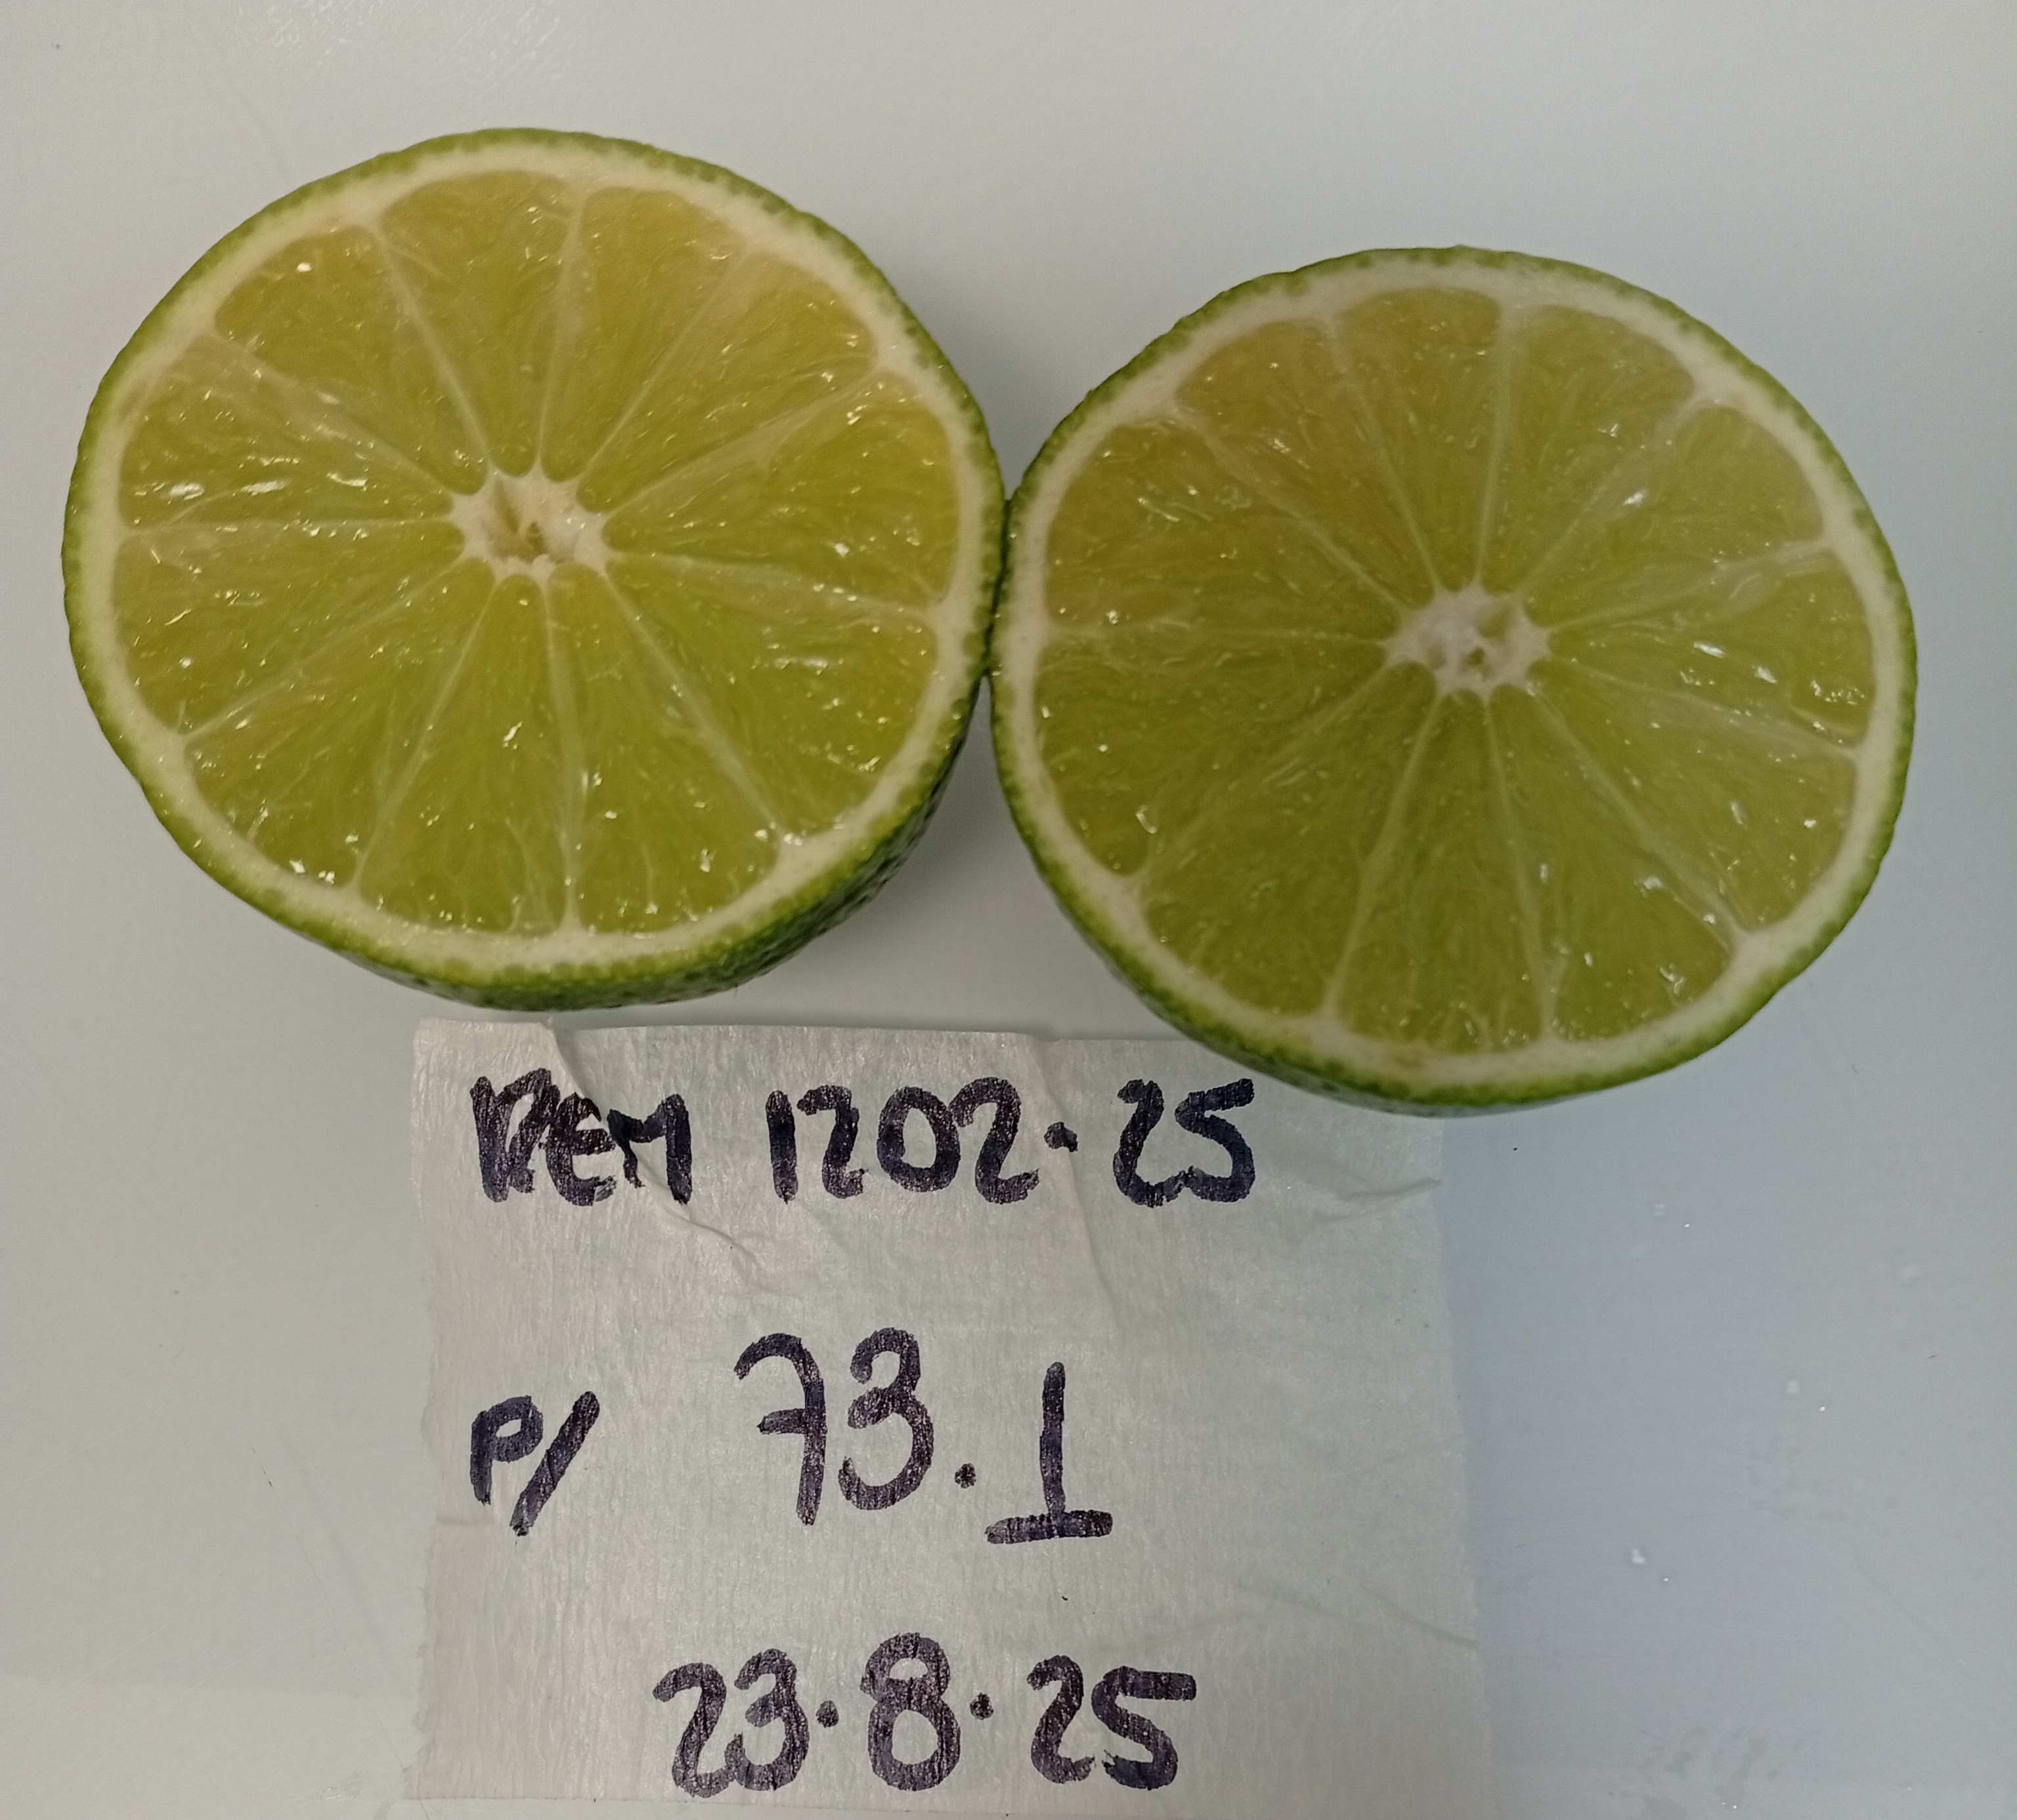 REM 1202.25
P/ 73.1
23.8.25